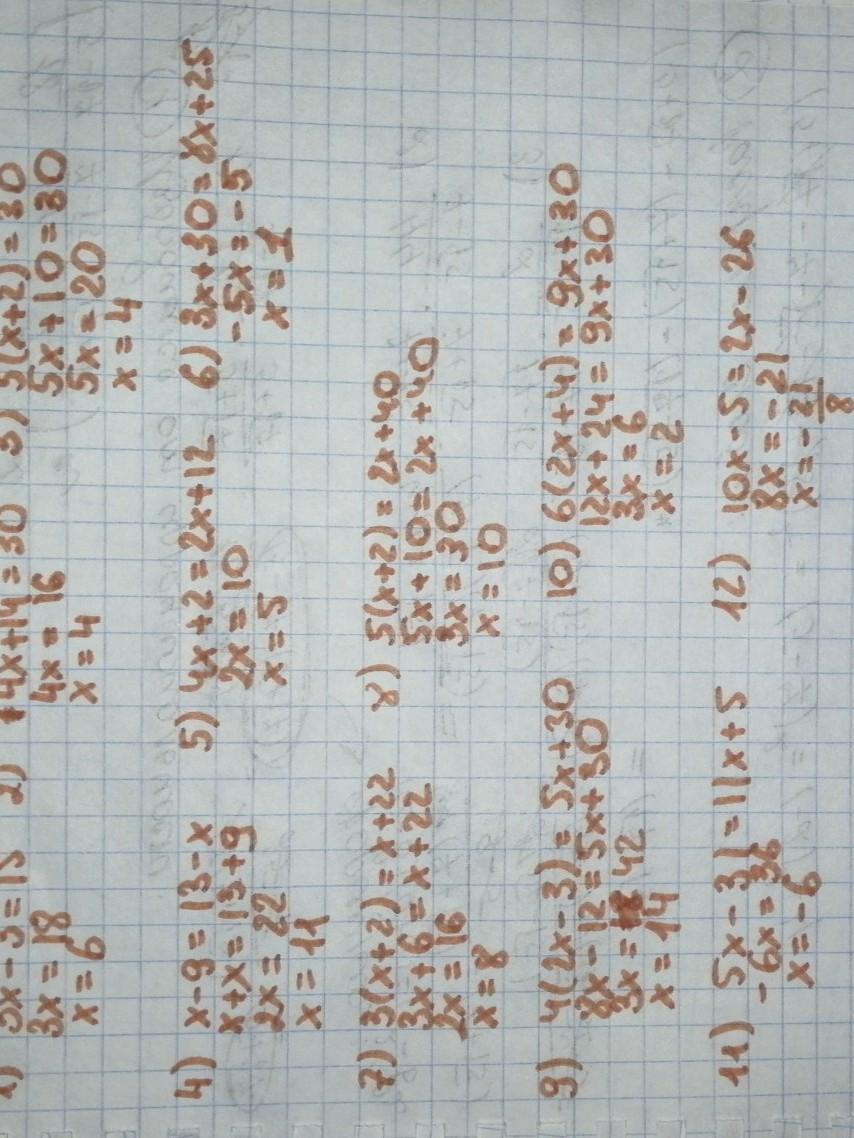 1) 3x-3=15
3x=18
x=6
2) 4x+14=30
4x=16
x=4
3) 5(x+2)=30
5x+10=30
5x=20
x=4
4) x-9=13-x
x+x=13+9
2x=22
x=11
5) 4x+2=2x+12
2x=10
x=5
6) 3x+30=8x+25
-5x=-5
x=1
7) 3(x+2)=x+22
3x+6=x+22
2x=16
x=8
8) 5(x+2)=2x+40
5x+10=2x+40
3x=30
x=10
9) 4(2x-3)=5x+30
8x-12=5x+30
3x=42
x=14
10) 6(2x+4)=9x+30
12x+24=9x+30
3x=6
x=2
11) 5x-31=11x+5
-6x=36
x=-6
12) 10x-5=2x-26
8x=-21
x=-21/8